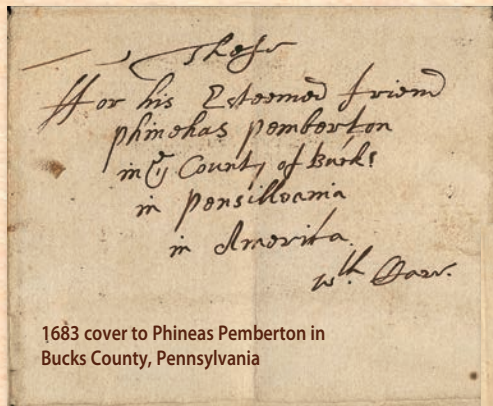 These
ffor his Esteemed friend
phinehas pemberton
in ye County of Bucks
in Pensilvania
in America
wth Care.
1683 cover to Phineas Pemberton in
Bucks County, Pennsylvania